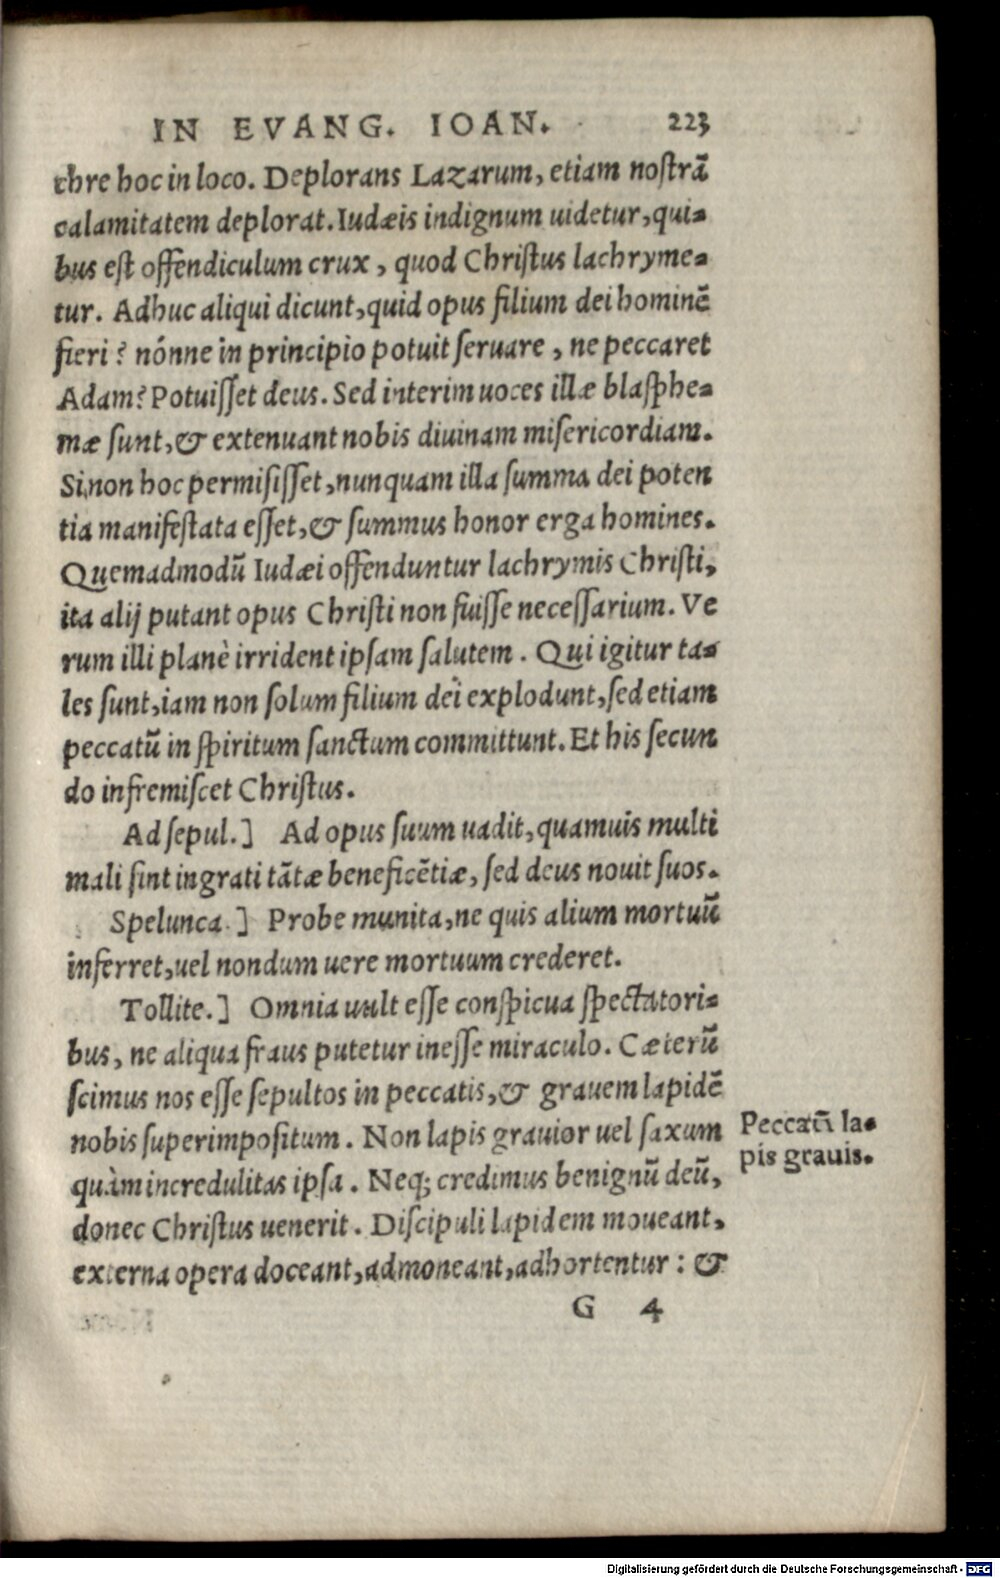 IN EVANG. IOAN. 223
chre hoc in loco. Deplorans Lazarum, etiam nostrā
calamitatem deplorat. Iudæis indignum uidetur, qui-
bus est offendiculum crux, quod Christus lachryme-
tur. Adhuc aliqui dicunt, quid opus filium dei hominē
fieri? nónne in principio potuit seruare, ne peccaret
Adam? Potuisset deus. Sed interim uoces illæ blasphe-
mæ sunt, & extenuant nobis diuinam misericordiam.
Si non hoc permisisset, nunquam illa summa dei poten
tia manifestata esset, & summus honor erga homines.
Quemadmodū Iudæi offenduntur lachrymis Christi,
ita alij putant opus Christi non fuisse necessarium. Ve
rum illi planè irrident ipsam salutem. Qui igitur ta-
les sunt, iam non solum filium dei explodunt, sed etiam
peccatū in spiritum sanctum committunt. Et his secun
do infremiscet Christus.
Ad sepul.] Ad opus suum uadit, quamuis multi
mali sint ingrati tātæ beneficētiæ, sed deus nouit suos.
Spelunca.] Probe munita, ne quis alium mortuū
inferret, uel nondum uere mortuum crederet.
Tollite.] Omnia uult esse conspicua spectatori-
bus, ne aliqua fraus putetur inesse miraculo. Cæterū
scimus nos esse sepultos in peccatis, & grauem lapidē
nobis superimpositum. Non lapis grauior uel saxum
quàm incredulitas ipsa. Neq; credimus benignū deū,
donec Christus uenerit. Discipuli lapidem moueant,
externa opera doceant, admoneant, adhortentur: &
Peccatū la-
pis grauis.
G 4
Digitalisierung gefördert durch die Deutsche Forschungsgemeinschaft - DFG